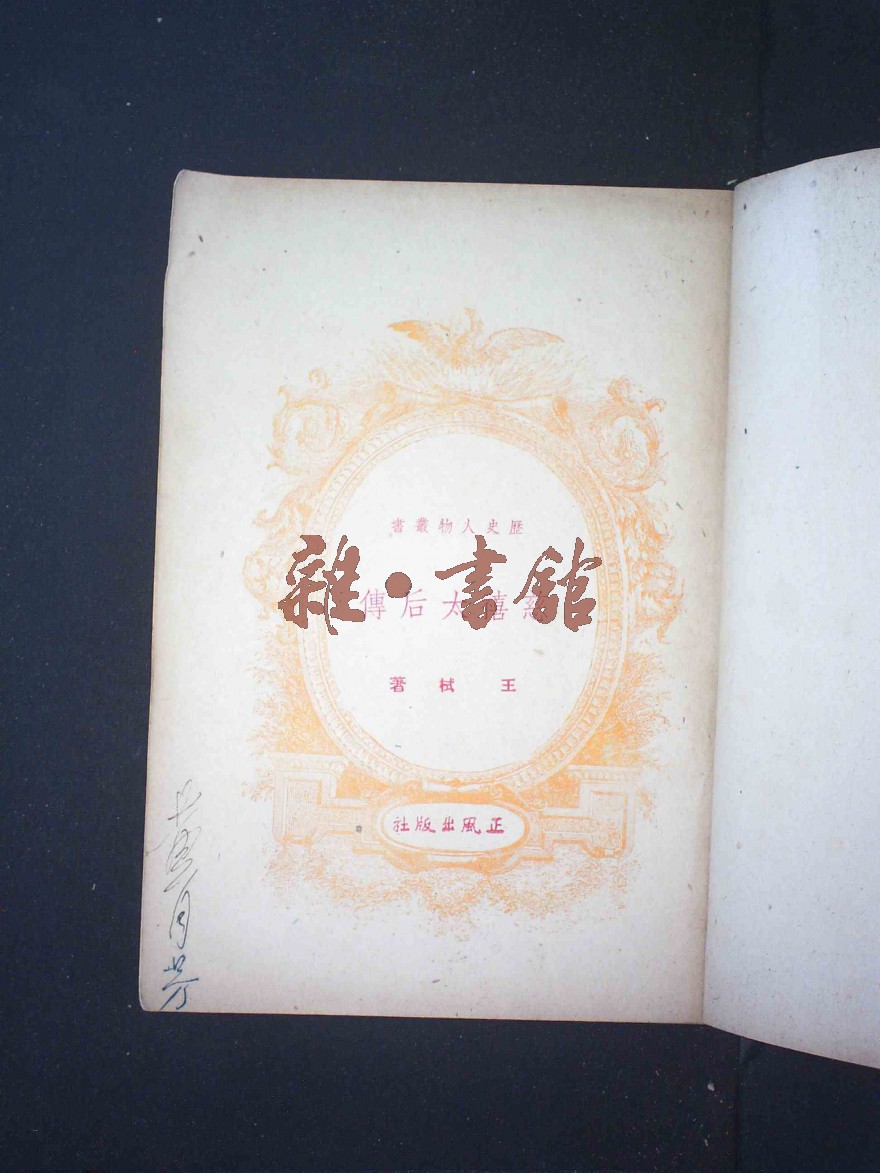 歷史人物叢書
慈禧太后傳
雜·書館
王栻著
正風出版社